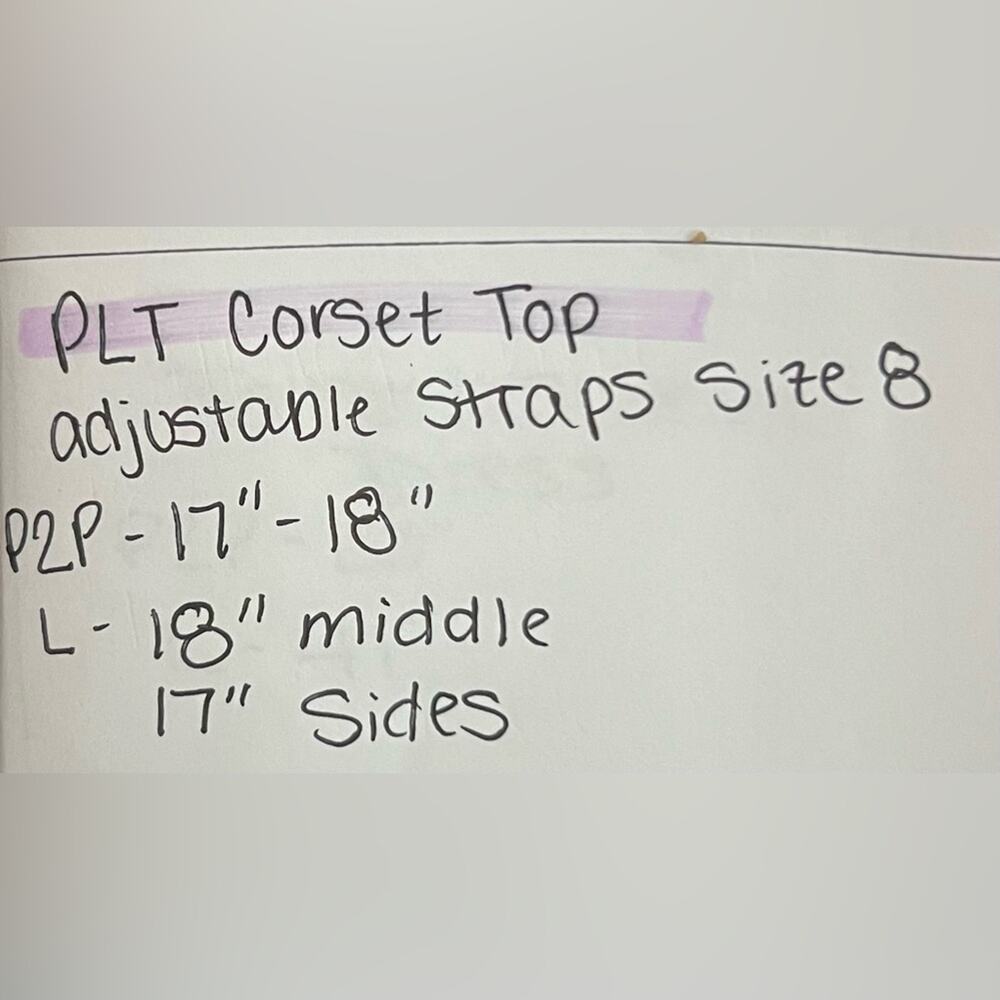 PLT Corset Top
adjustable Straps Size 8
P2P - 17" - 18"
L - 18" middle
17" Sides